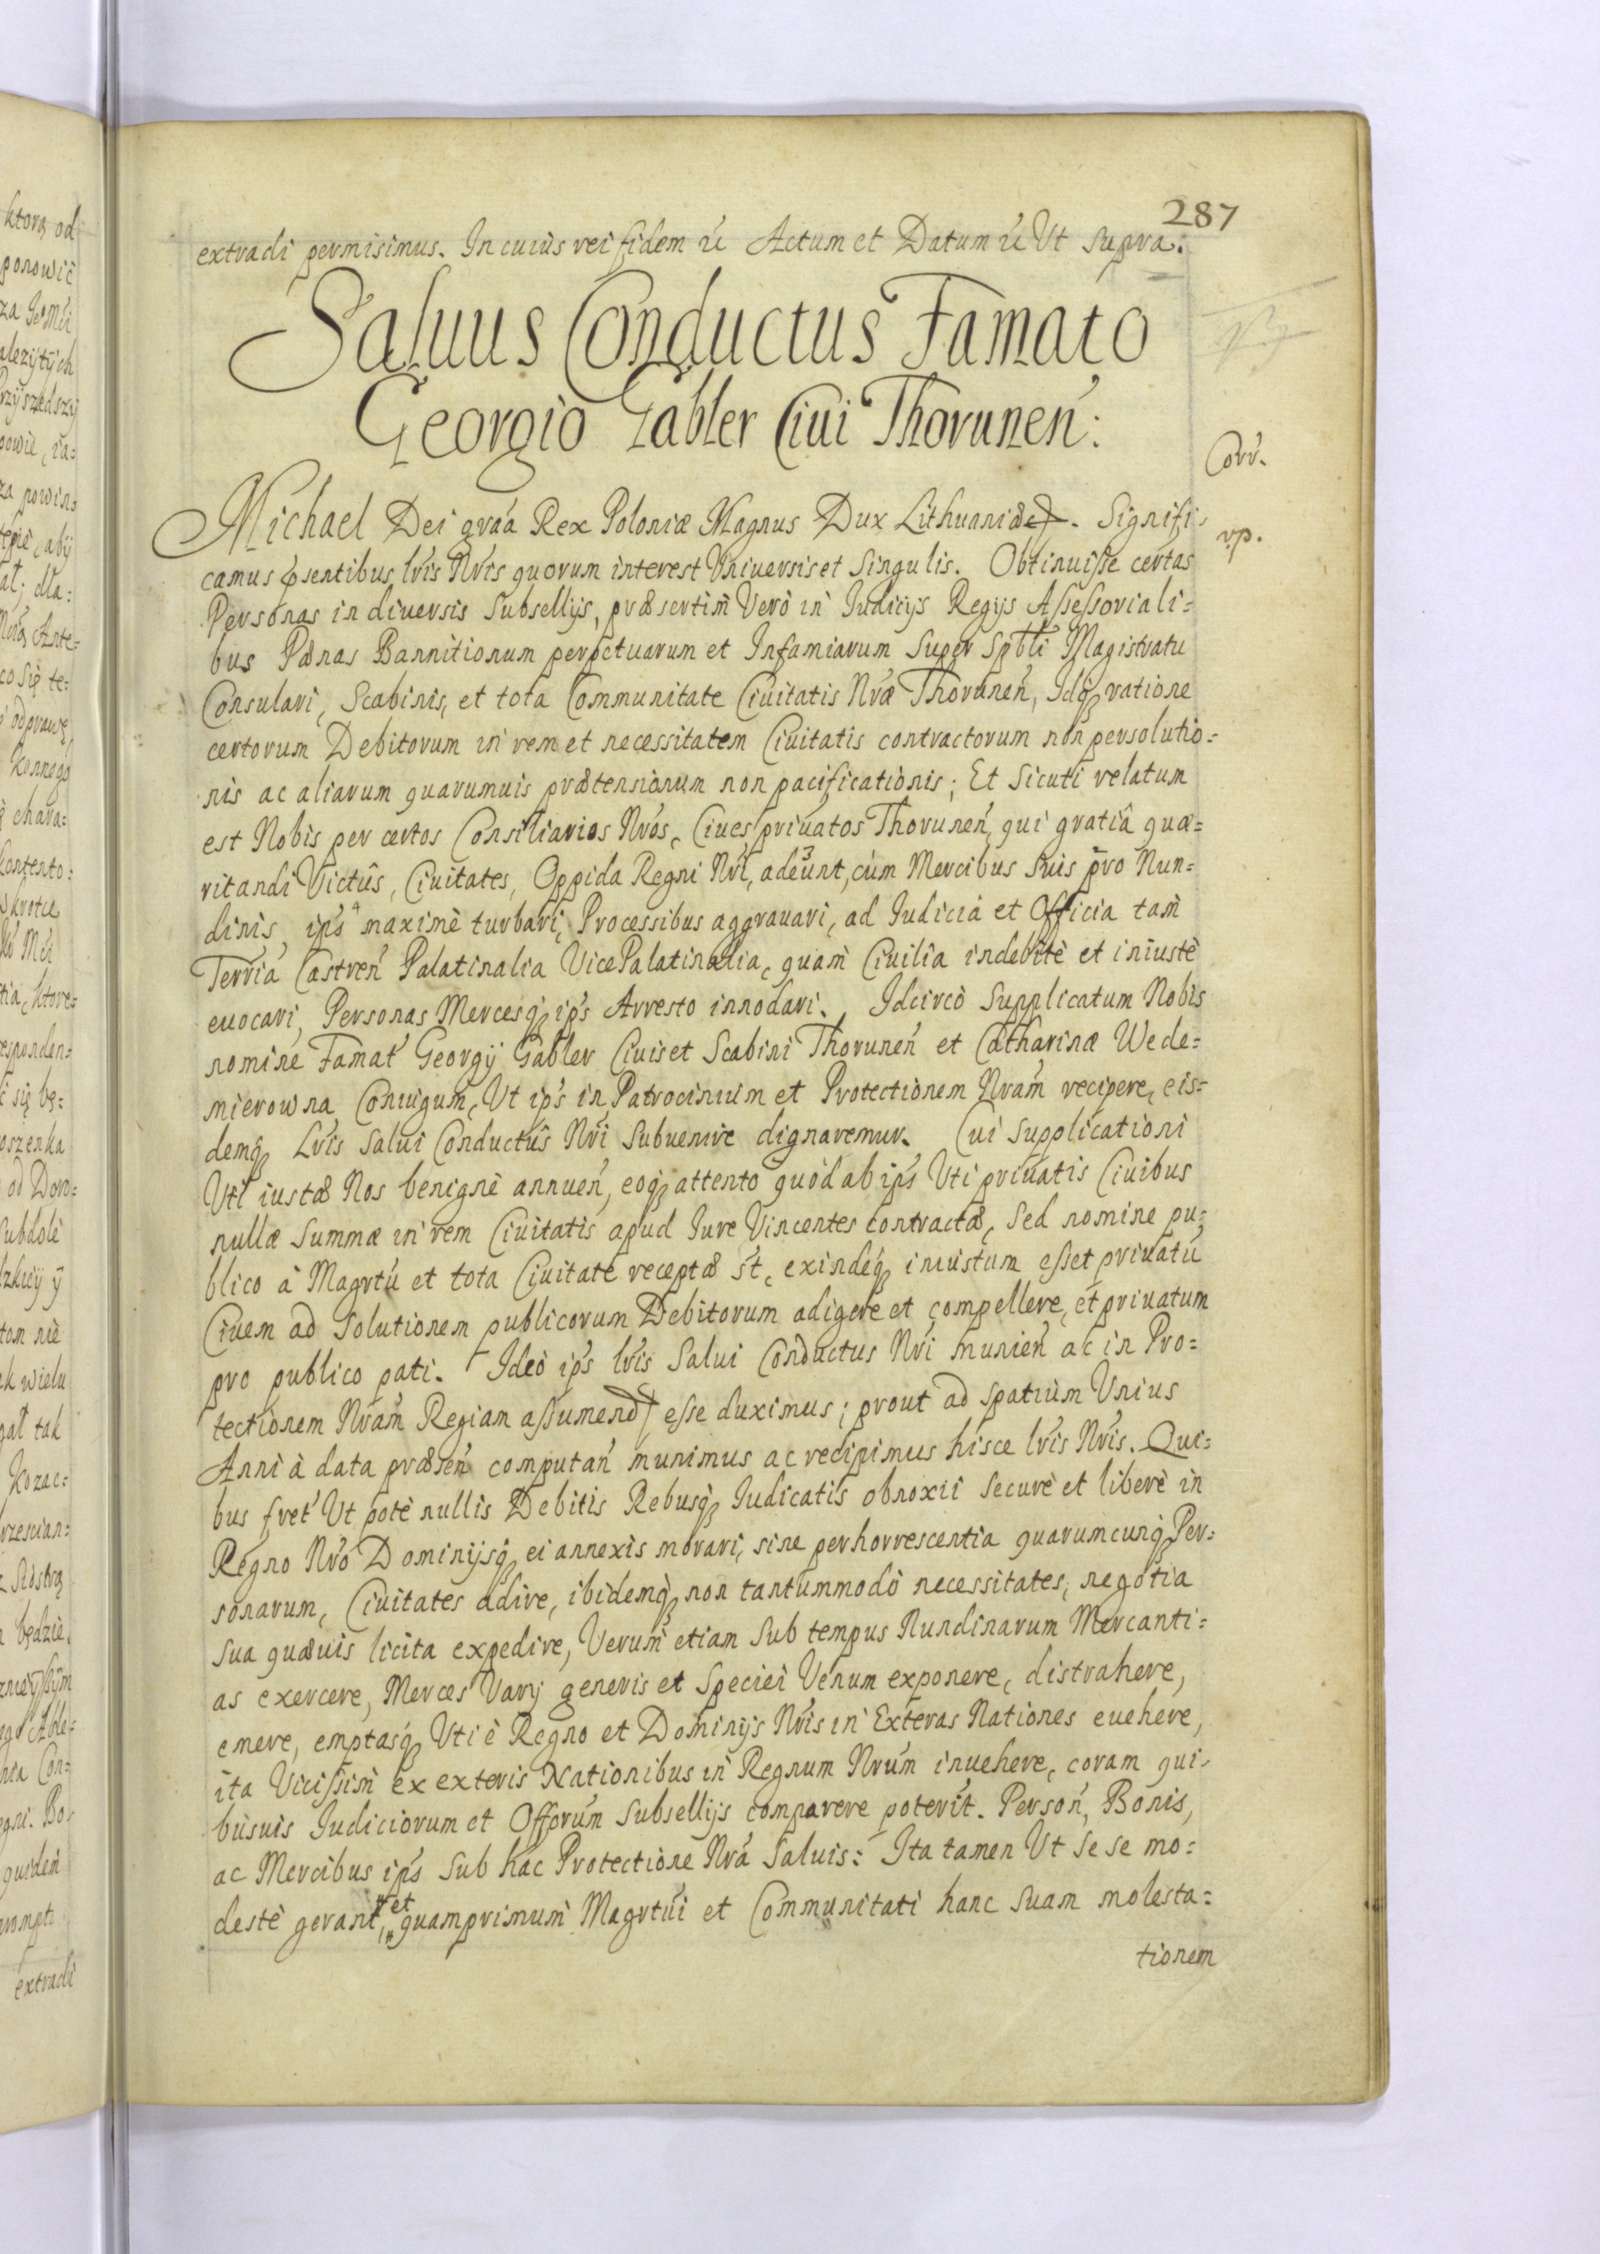 287
extradi permisimus. In cuius rei fidem &c Actum et Datum &c Ut supra.
Saluus Conductus Famato
Georgio Gabler Ciui Thorunen:
Corr.
Michael Dei graâ Rex Poloniæ Magnus Dux Lithuaniæ &c. Signifi-
vp.
camus pñsentibus lris Nris quorum interest Universis et Singulis. Obtinuisse certas
Personas in diuersis Subsellijs, præsertim Verò in Iudicijs Regijs Assessoriali=
bus Pænas Bannitionum perpetuarum et Infamiarum Super Spbli Magistratu
Consulari, Scabinis, et tota Communitate Ciuitatis Nræ Thorunen, Idq ratione
certorum Debitorum in rem et necessitatem Ciuitatis contractorum non persolutio=
nis ac aliarum quarumuis prætensionum non pacificationis; Et Sicuti relatum
est Nobis per certos Consiliarios Nros, Ciues priuatos Thorunen, qui gratiâ quæ=
ritandi Victûs, Ciuitates, Oppida Regni Nri, adeunt, cùm Mercibus Suis pro Nun=
dinis, ips maximè turbari, Processibus aggrauari, ad Iudicia et Officia tam
Terria Castren Palatinalia VicePalatinalia, quàm Ciuilia indebitè et iniustè
euocari, Personas Mercesq ips Arresto innodari. Idcircò Supplicatum Nobis
nomine Famat Georgij Gabler Ciuis et Scabini Thorunen et Catharinæ Wede=
mierowna Coniugum, Ut ips in Patrocinium et Protectionem Nram recipere, eis=
demq Lris Salui Conductûs Nri Subuenire dignaremur. Cui Supplicationi
Uti iustæ Nos benignè annuen, eoq attento quòd ab ips Uti priuatis Ciuibus
nullæ Summæ in rem Ciuitatis apud Iure Vincentes contractæ, Sed nomine pu=
blico à Magrtu et tota Ciuitate receptæ st, exindeq iniustum esset priuatu
Ciuem ad Solutionem publicorum Debitorum adigere et compellere, et priuatum
pro publico pati. Ideò ips lris Salui Conductus Nri munien ac in Pro=
tectionem Nram Regiam assumend esse duximus; prout ad spatium Unius
Anni à data præsen computan munimus ac recipimus hisce lris Nris. Qui=
bus fret Ut pote nullis Debitis Rebusq Iudicatis obnoxii securè et liberè in
Regno Nro Dominijsq ei annexis morari, sine perhorrescentia quarumcunq Per=
sonarum, Ciuitates adire, ibidemq non tantummodò necessitates, negotia
sua quæuis licita expedire, Verum etiam Sub tempus Nundinarum Mercanti=
as exercere, Merces Varij generis et Speciei Venum exponere, distrahere,
emere, emptasq Uti è Regno et Dominijs Nris in Exteras Nationes euehere,
ita Vicissim ex exteris Nationibus in Regnum Nrum inuehere, coram qui-
busuis Iudiciorum et Offorum Subsellijs comparere poterit. Person, Bonis,
ac Mercibus ips Sub hac Protectione Nra Saluis: Ita tamen Ut se se mo=
destè gerant, et quamprimum Magrtui et Communitati hanc Suam molesta=
tionem